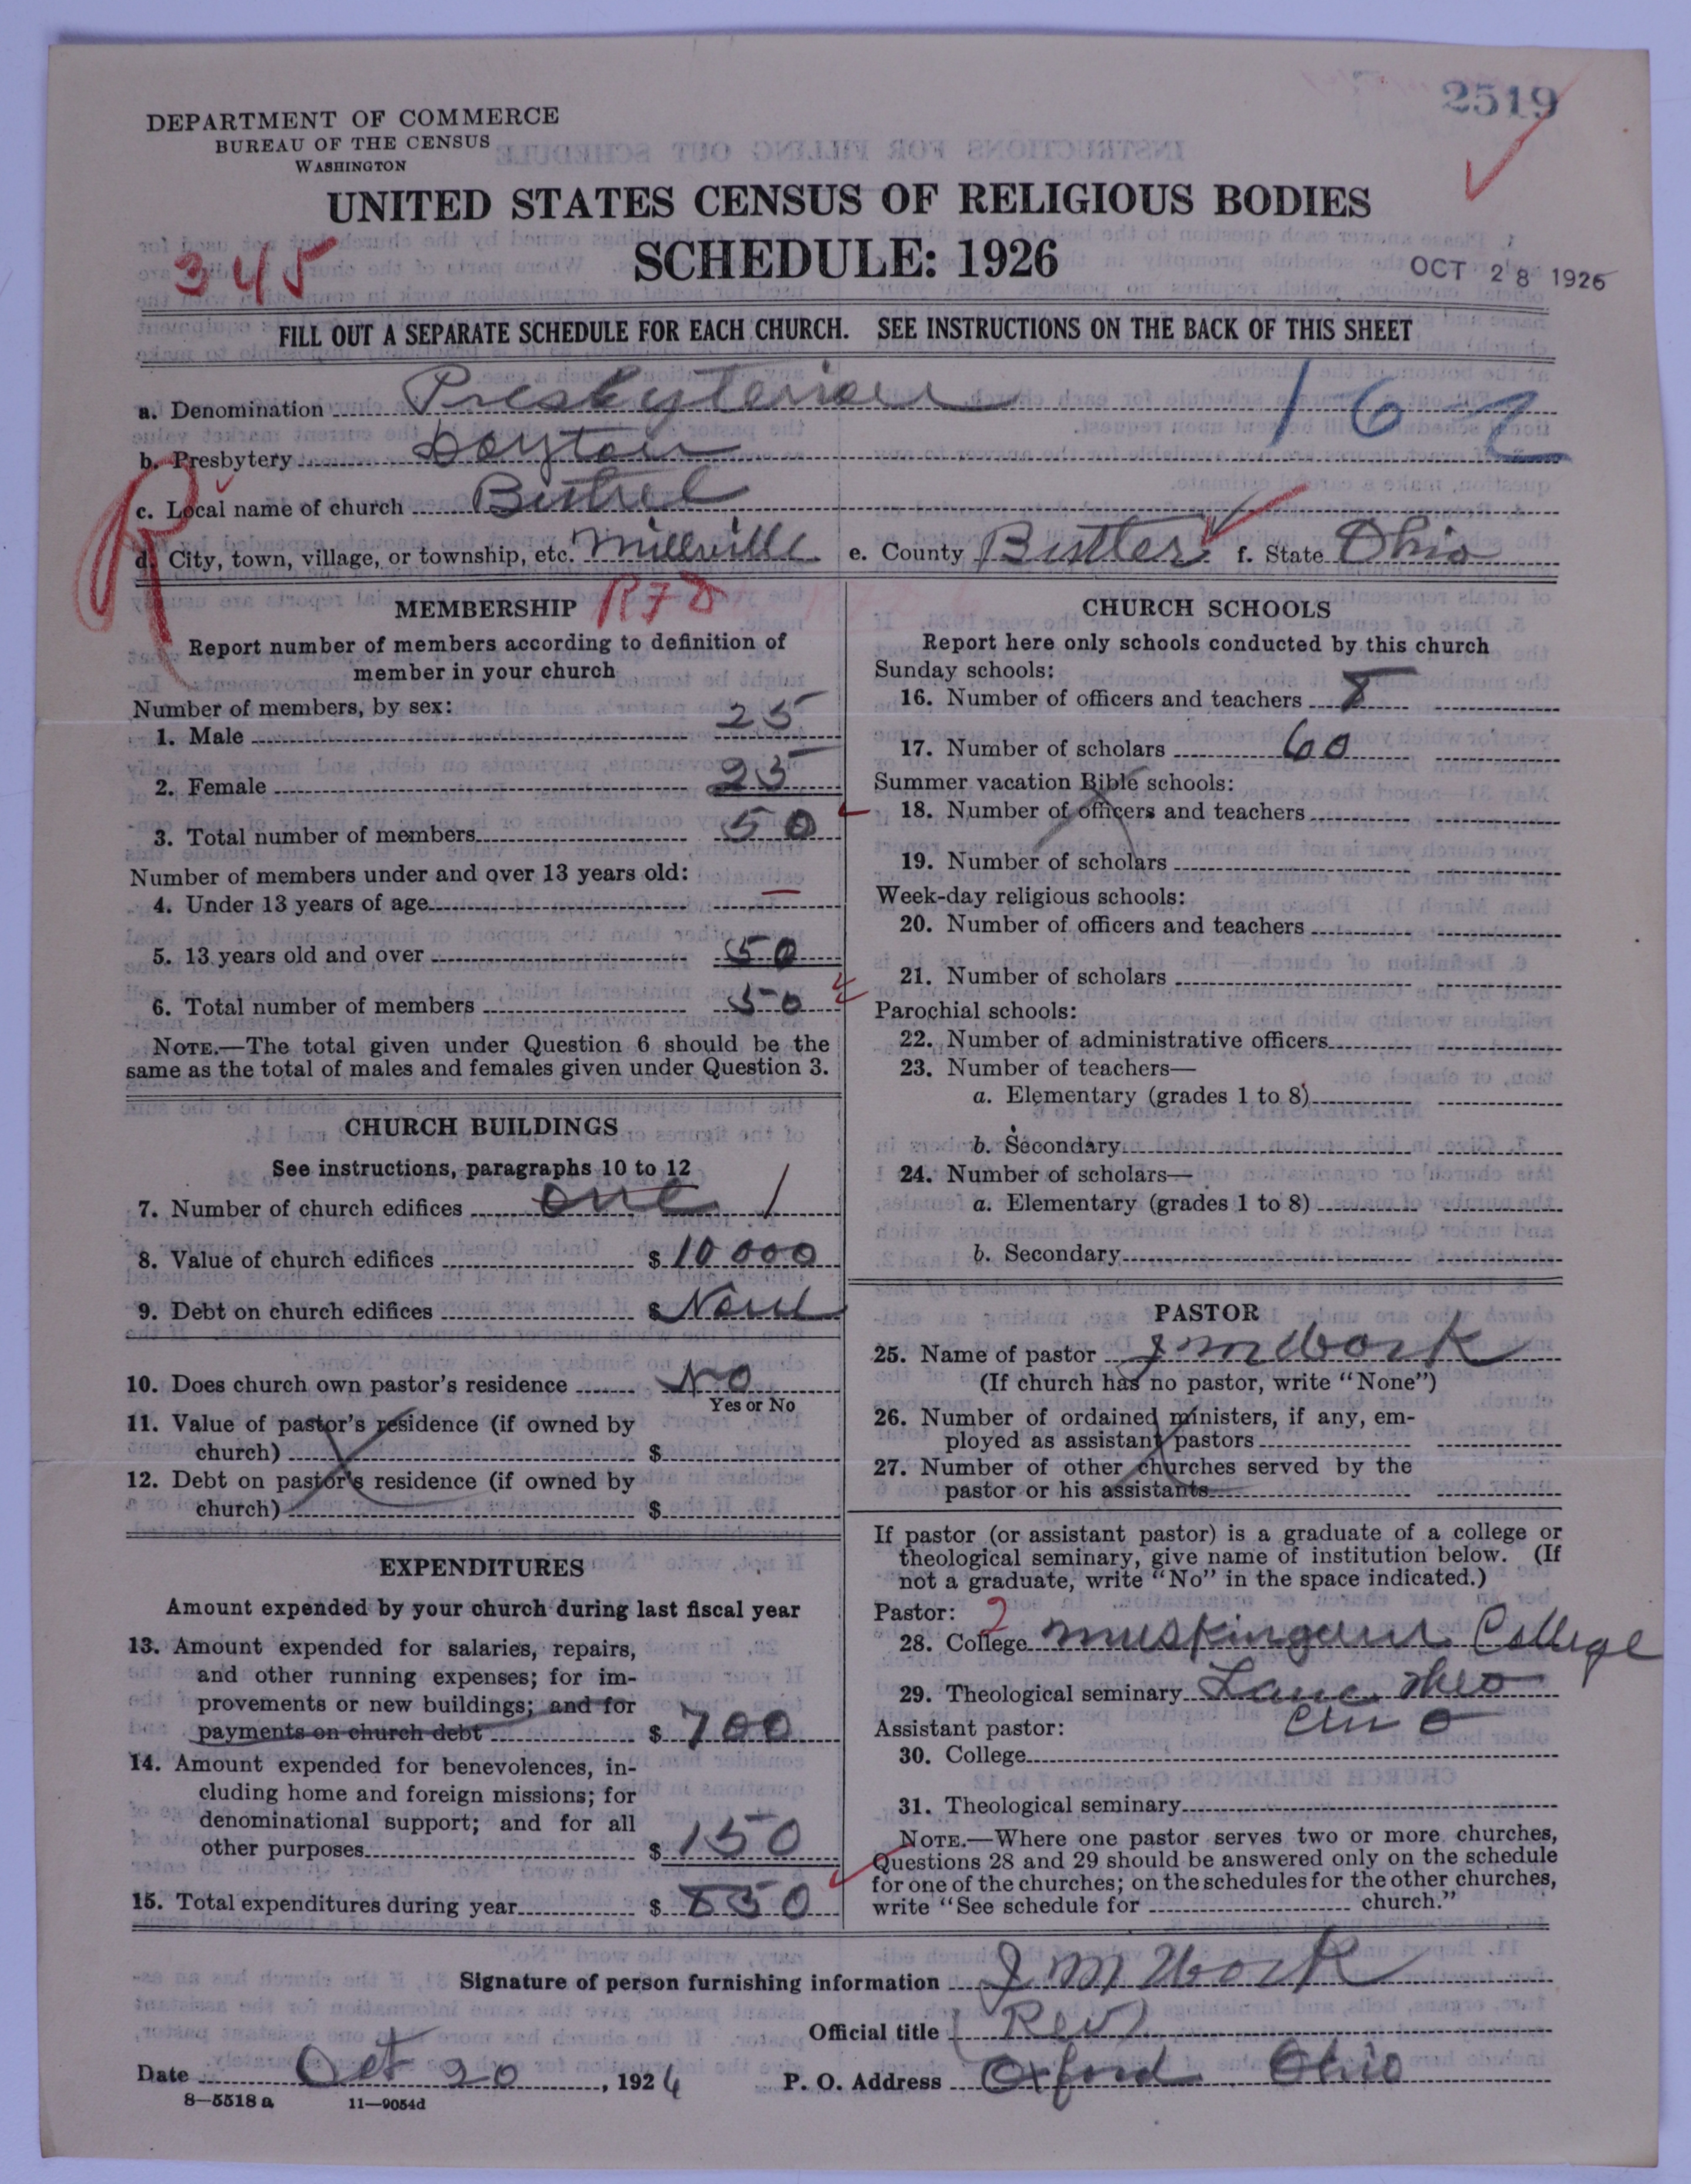 2519
DEPARTMENT OF COMMERCE
BUREAU OF THE CENSUS
WASHINGTON
UNITED STATES CENSUS OF RELIGIOUS BODIES
SCHEDULE: 1926
345
OCT 28 1926
FILL OUT A SEPARATE SCHEDULE FOR EACH CHURCH. SEE INSTRUCTIONS ON THE BACK OF THIS SHEET
a. Denomination Presbyterian 162
b. Presbytery Dayton
c. Local name of church Bethel
R
d. City, town, village, or township, etc. Millville e. County Butler f. State Ohio
MEMBERSHIP
Report number of members according to definition of
member in your church
Number of members, by sex:
1. Male 25
2. Female 25
3. Total number of members 50
Number of members under and over 13 years old:
4. Under 13 years of age —
5. 13 years old and over 50
6. Total number of members 50
NOTE.—The total given under Question 6 should be the
same as the total of males and females given under Question 3.
CHURCH BUILDINGS
See instructions, paragraphs 10 to 12
7. Number of church edifices one 1
8. Value of church edifices $ 10000
9. Debt on church edifices $ None
10. Does church own pastor's residence No
Yes or No
11. Value of pastor's residence (if owned by
church) $
12. Debt on pastor's residence (if owned by
church) $
EXPENDITURES
Amount expended by your church during last fiscal year
13. Amount expended for salaries, repairs,
and other running expenses; for im-
provements or new buildings; and for
payments on church debt $ 700
14. Amount expended for benevolences, in-
cluding home and foreign missions; for
denominational support; and for all
other purposes $ 150
15. Total expenditures during year $ 850
CHURCH SCHOOLS
Report here only schools conducted by this church
Sunday schools:
16. Number of officers and teachers 8
17. Number of scholars 60
Summer vacation Bible schools:
18. Number of officers and teachers
19. Number of scholars
Week-day religious schools:
20. Number of officers and teachers
21. Number of scholars
Parochial schools:
22. Number of administrative officers
23. Number of teachers—
a. Elementary (grades 1 to 8)
b. Secondary
24. Number of scholars—
a. Elementary (grades 1 to 8)
b. Secondary
PASTOR
25. Name of pastor J M Work
(If church has no pastor, write "None")
26. Number of ordained ministers, if any, em-
ployed as assistant pastors
27. Number of other churches served by the
pastor or his assistants
If pastor (or assistant pastor) is a graduate of a college or
theological seminary, give name of institution below. (If
not a graduate, write "No" in the space indicated.)
Pastor: 2
28. College Muskingum College
29. Theological seminary Lane Theo
Assistant pastor:
30. College
31. Theological seminary
NOTE.—Where one pastor serves two or more churches,
Questions 28 and 29 should be answered only on the schedule
for one of the churches; on the schedules for the other churches,
write "See schedule for church."
Signature of person furnishing information J M Work
Official title (Rev)
Date Oct 20, 1926 P. O. Address Oxford Ohio
8—5518 a 11—9054d